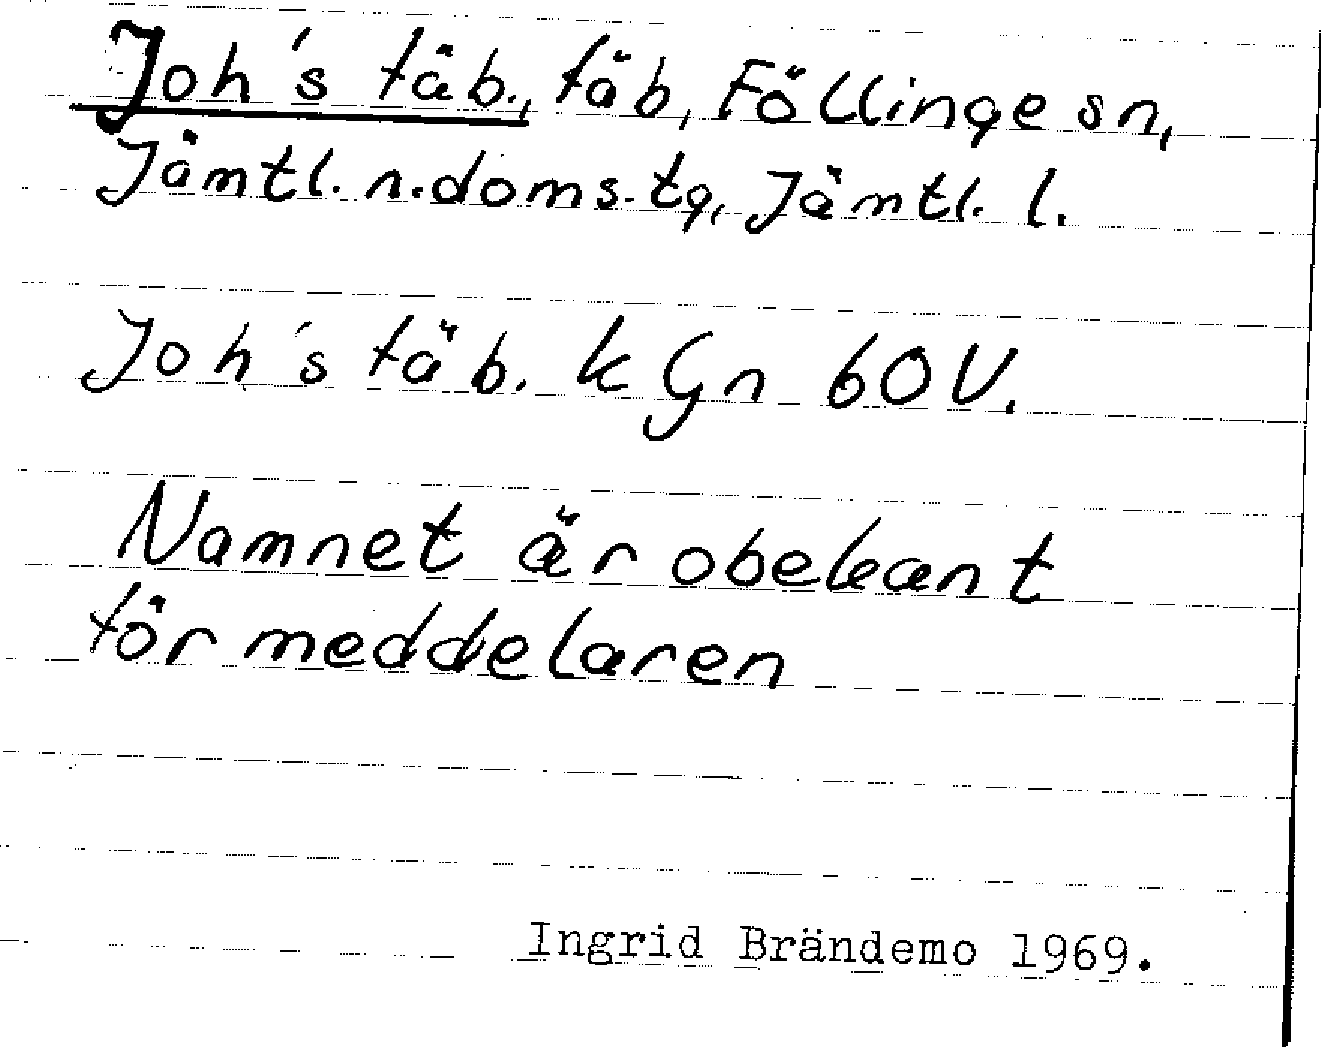 Joh's fäb., fäb, Föllinge sn,
Jämtl. n. doms. tg, Jämtl. l.
Joh's fäb. k Gn 60 V.
Namnet är obekant
för meddelaren
Ingrid Brändemo 1969.